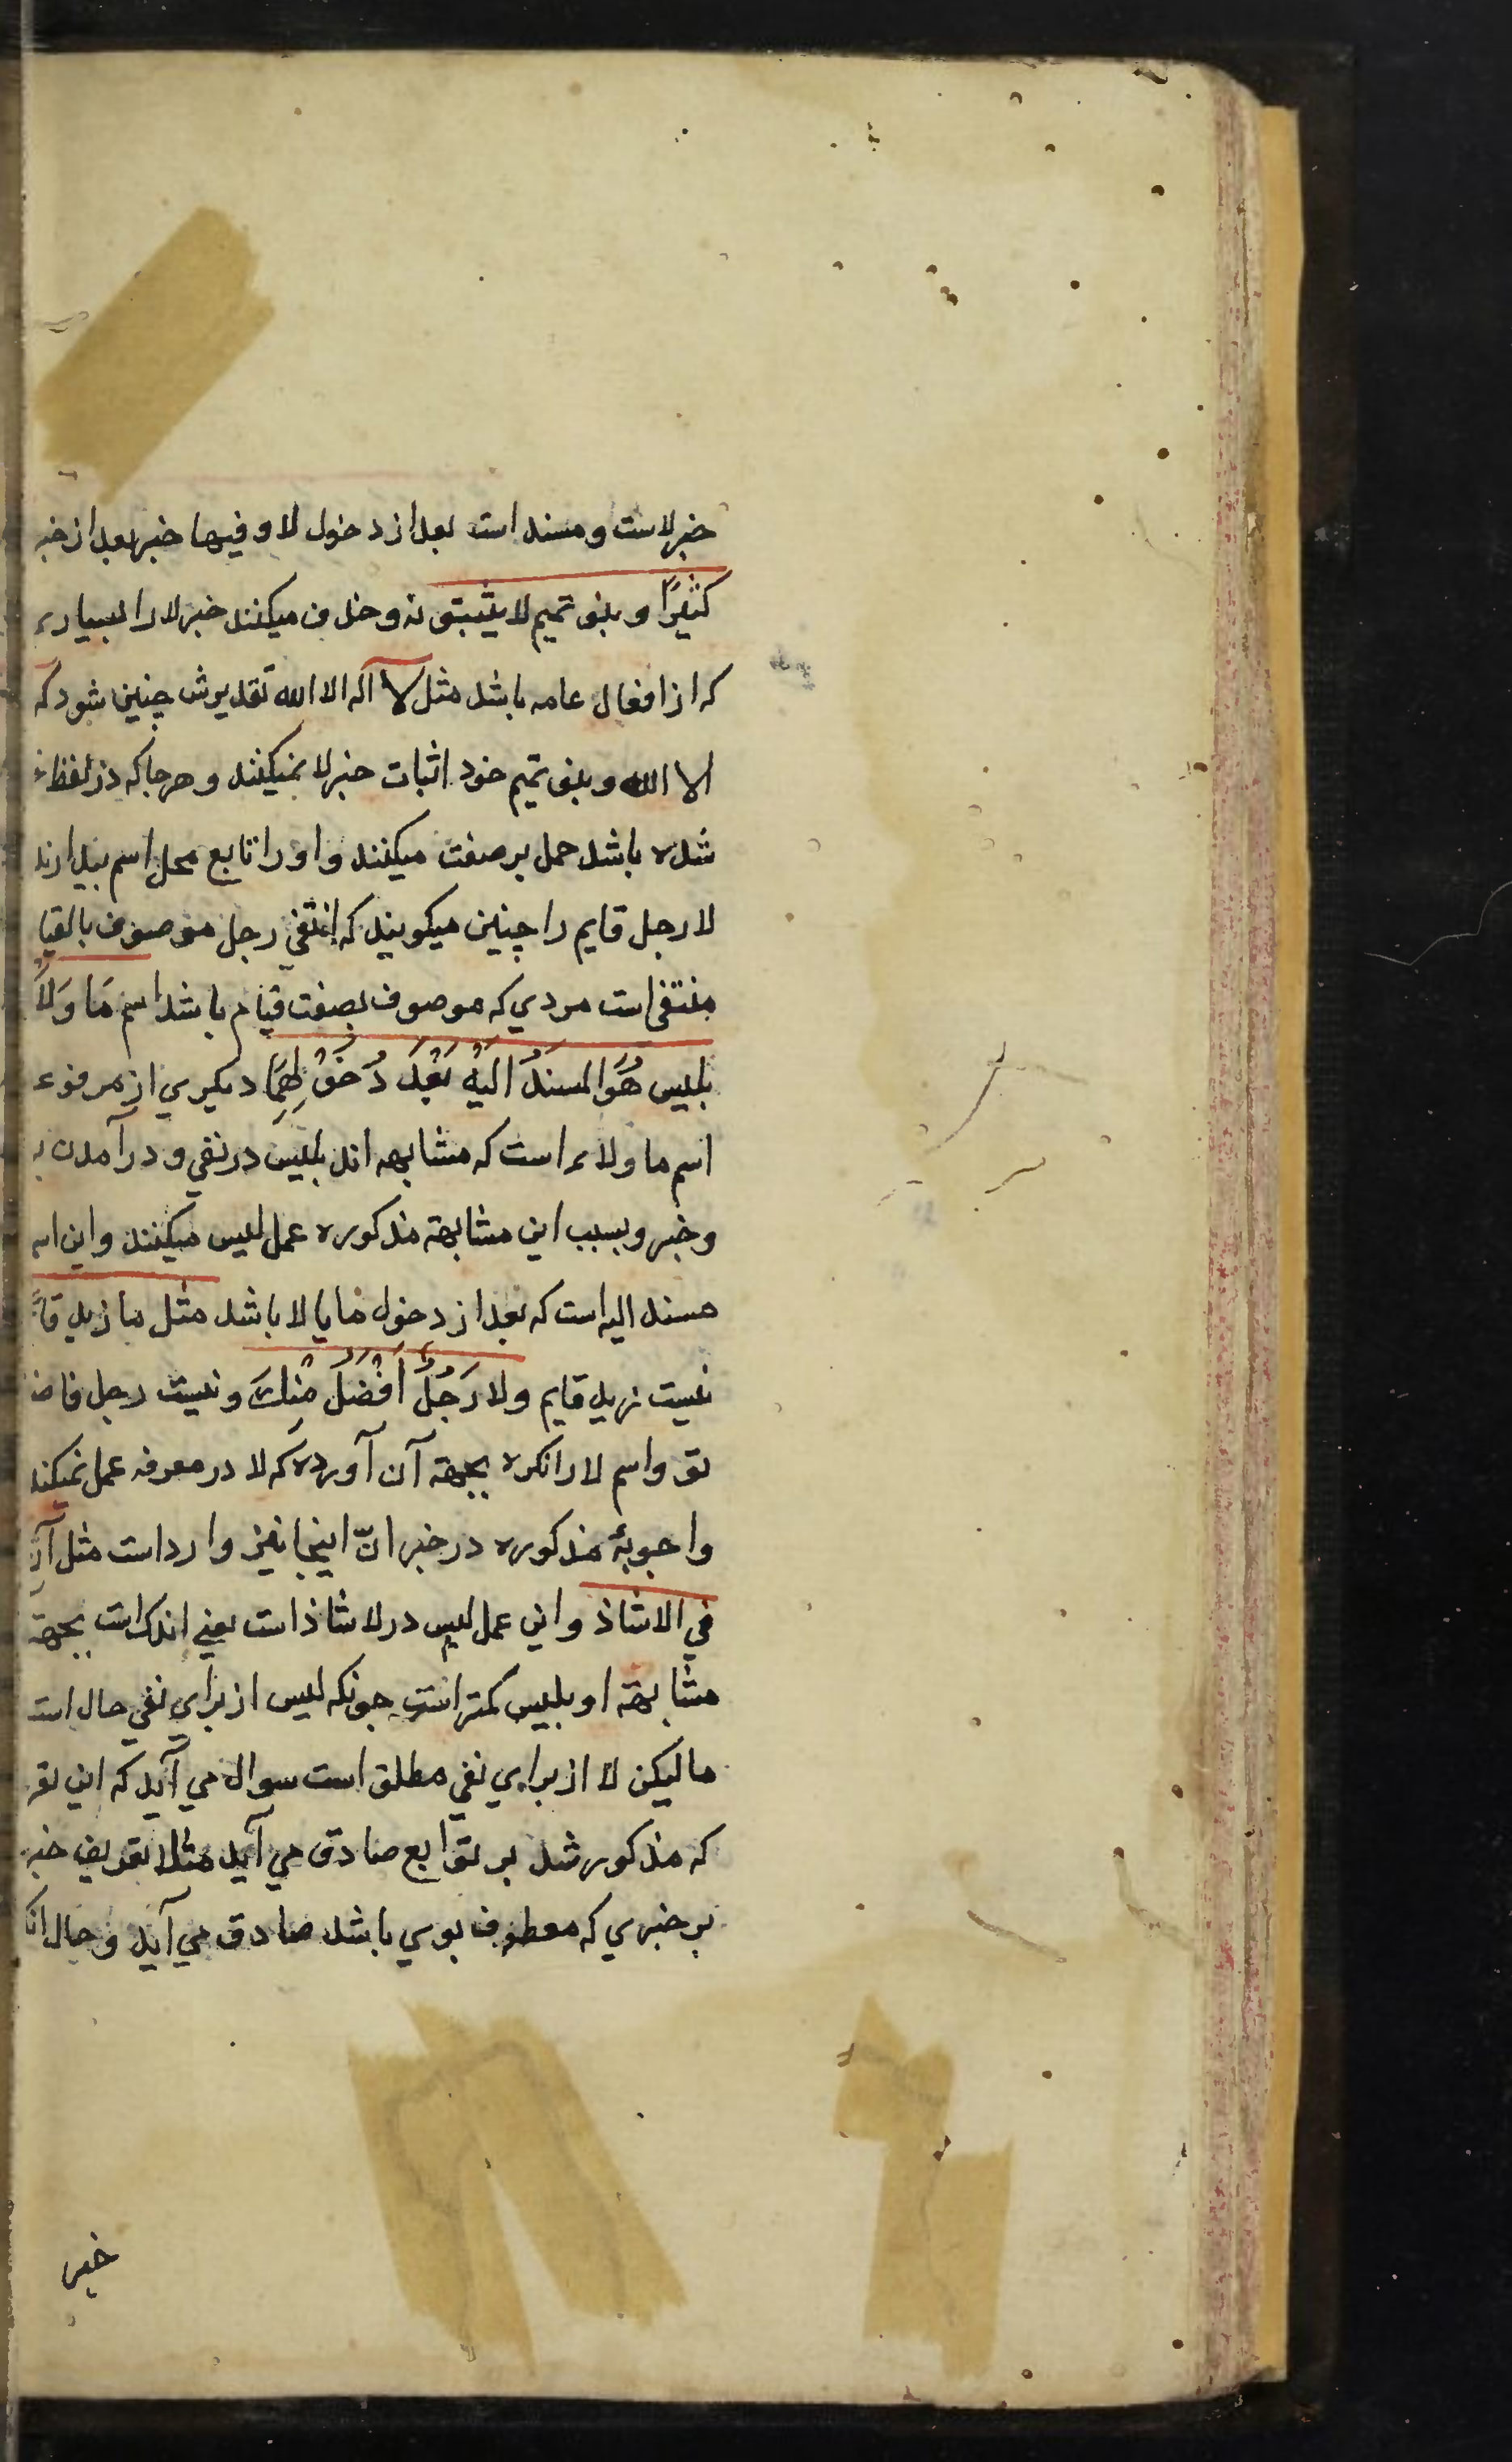 خبر لاست و مسند است بعد از دخول لا و فیها خبر بعد از خبر
کثیرًا و بنو تمیم لا یثبتونه و حذف میکنند خبر لا را بسیاری
که از افعال عامه باشد مثل لا اله الا الله تقدیرش چنین شود که
الا الله و بنو تمیم خود اثبات خبر لا نمیکنند و هر جا که در لفظ
شده باشد حمل بر صفت میکنند و او را تابع محل اسم میدارند
لا رجل قایم را چنین میکویند که انتفی رجل موصوف بالقیا
منتفی است مردي که موصوف بصفت قیام باشد اسم مَا وَلَا
بلیس هُوَ المسندُ الَیْهِ بَعْدَ دُخُوْلِهِمَا دیکري از مرفوع
اسم ما ولاء است که مشابهه اند بلیس در نفي و در آمدن بر
و خبر و بسبب این مشابهة مذکوره عمل لیس میکنند و این اسم
مسند الیه است که بعد از دخول ما یا لا باشد مثل ما زید قا
نیست زید قایم و لا رَجُلٌ اَفْضَلَ مِنْكَ و نیست رجل فاض
تو و اسم لا را نکره بجهة آن آورده که لا در معرفه عمل نمیکند
و اجوبهٔ مذکوره در خبر انّ اینجا نیز وارد است مثل آن
في لا شاذ و این عمل لیس در لا شاذ است یعني اندک است بجهة
مشابهة او بلیس کمتر است چونکه لیس از براي نفي حال است
ما لیکن لا از براي نفي مطلق است سوال مي آید که این تعر
که مذکور شد بر توابع صادق مي آید مثلا تعریف خبر
بر خبري که معطوف بوي باشد صادق مي آید و حال انکه
خبر